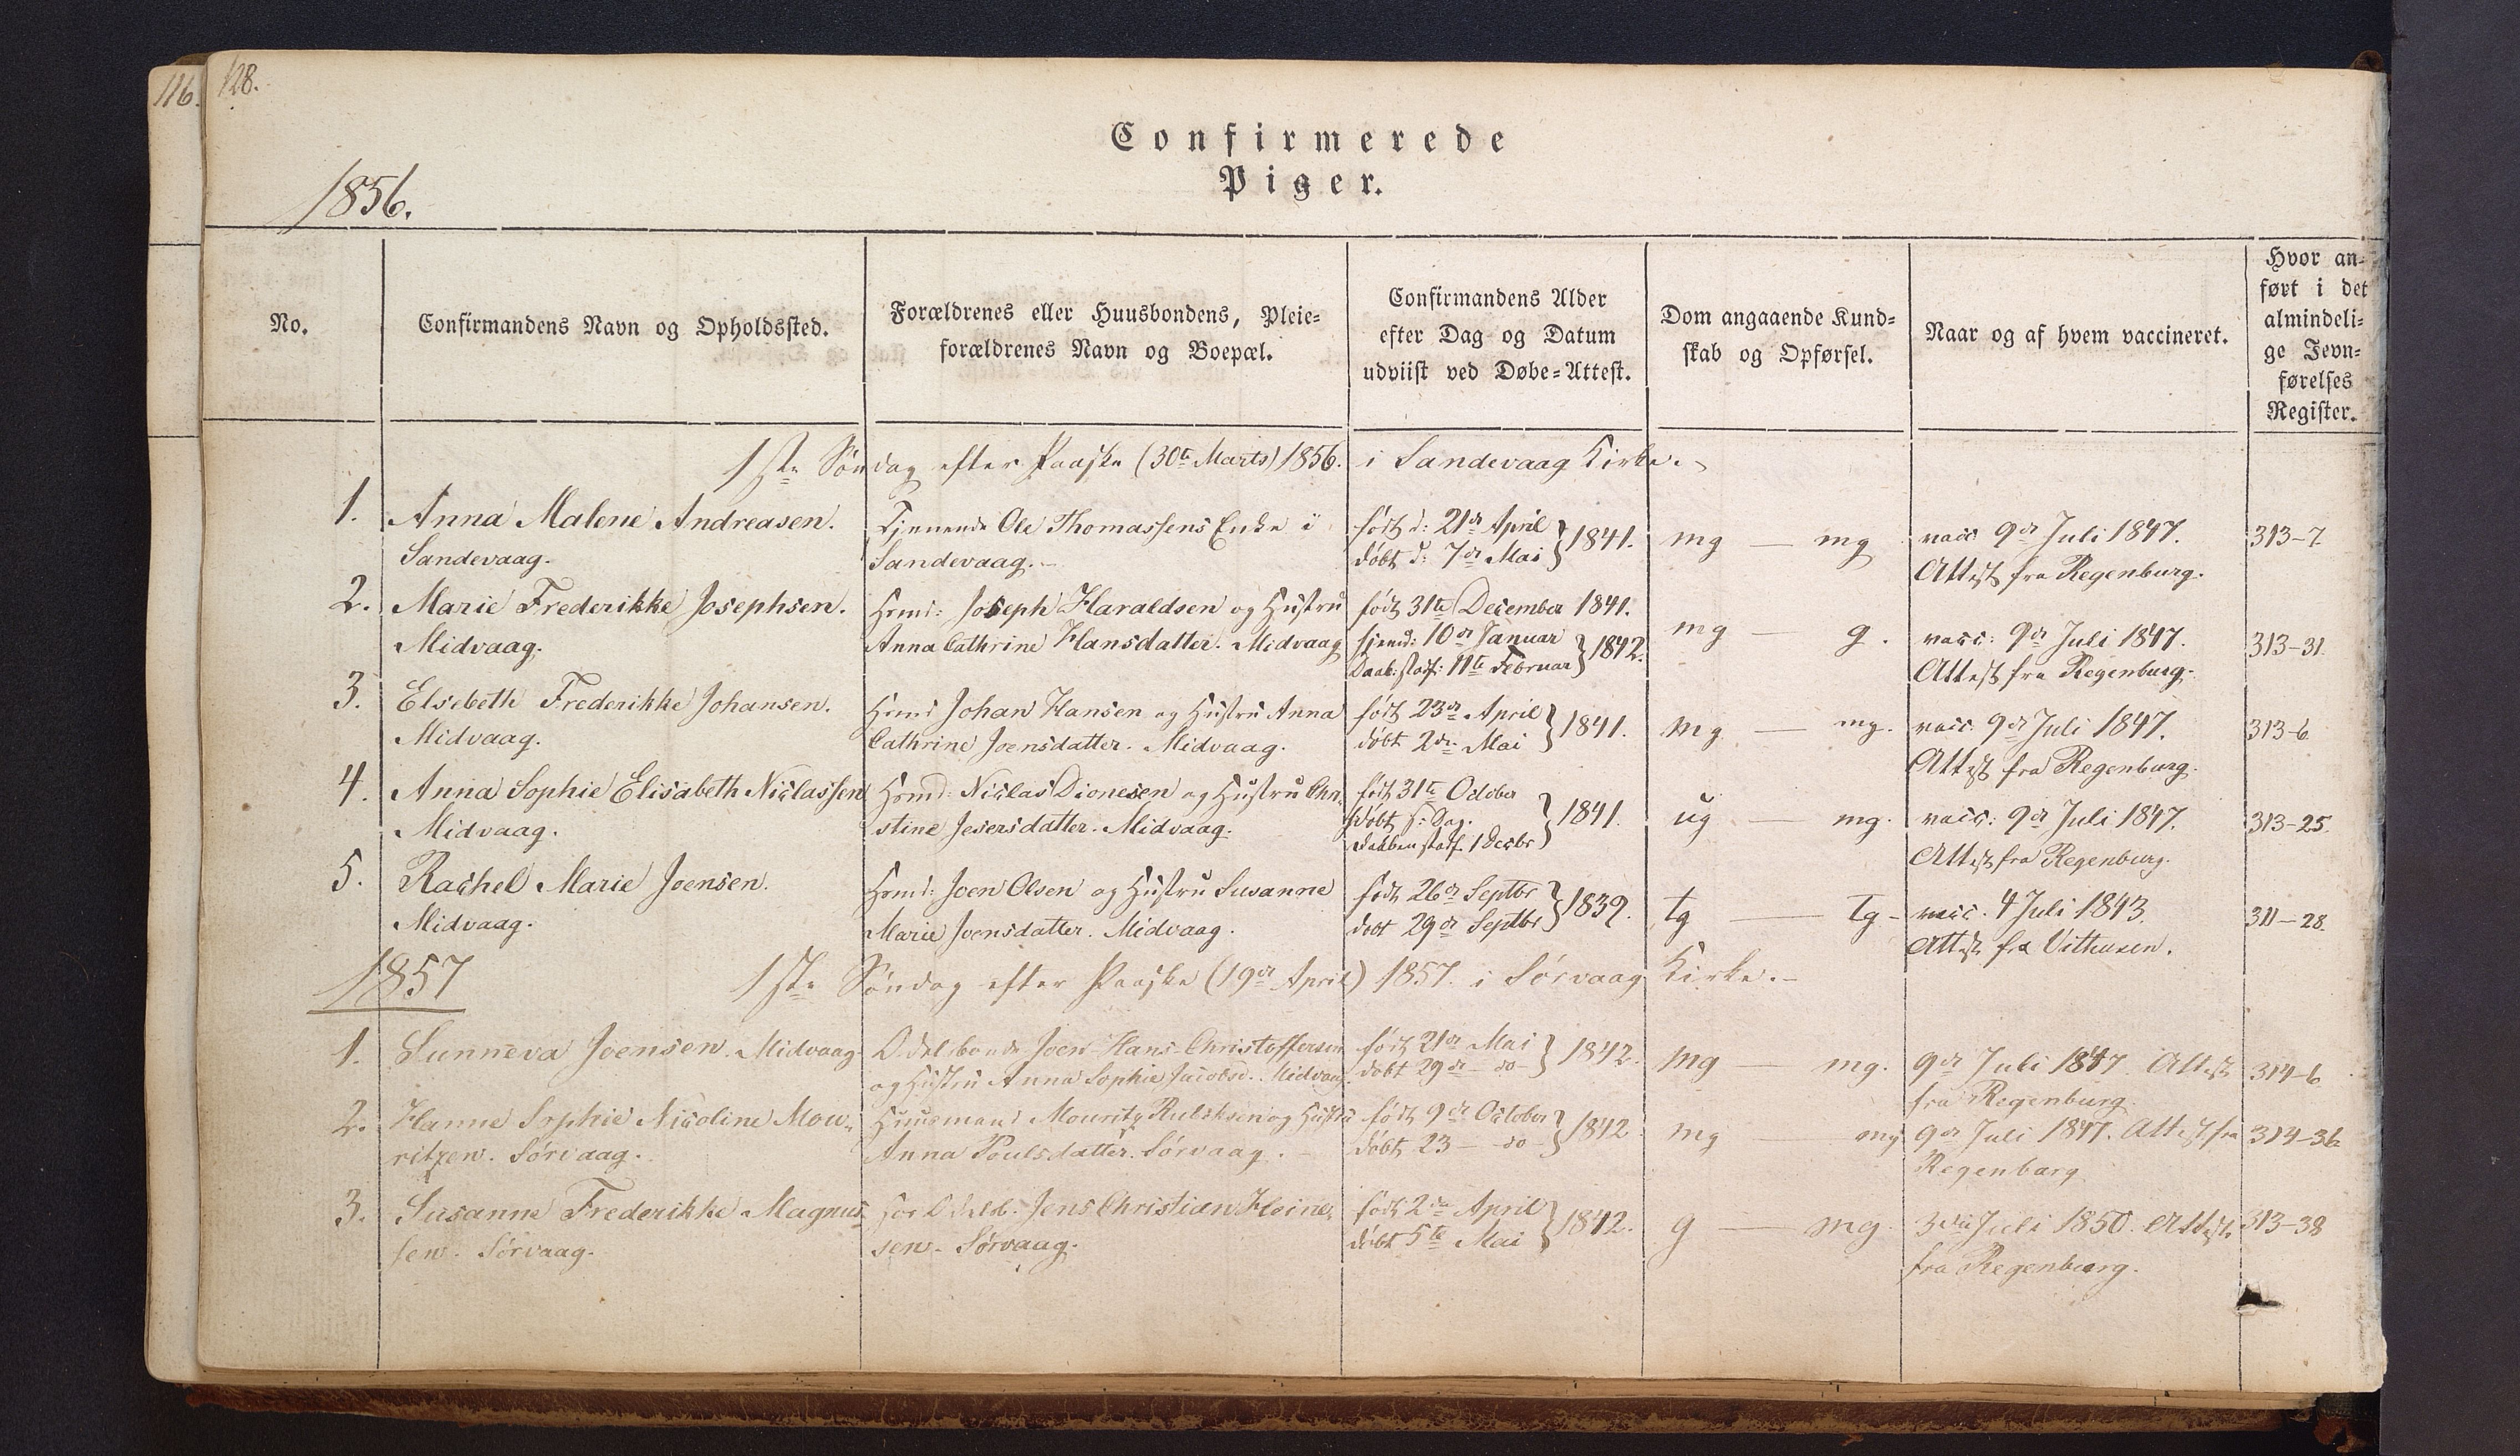 116.
128.
Confirmerede
Piger.
1856.
No.
Confirmandens Navn og Opholdssted.
Forældrenes eller Huusbondens, Pleie-
forældrenes Navn og Boepæl.
Confirmandens Alder
efter Dag og Datum
udviist ved Døbe-Attest.
Dom angaaende Kund-
skab og Opførsel.
Naar og af hvem vaccineret.
Hvor an-
ført i det
almindeli-
ge Jevn-
førelses
Register.
1ste Søndag efter Paaske (30te Marts) 1856. i Sandevaag Kirke.
1. Anna Malene Andreasen.
Sandevaag.
Tjenende Ole Thomassens Enke i
Sandevaag.
født d: 21de April
døbt d: 7de Mai } 1841.
mg — mg
vacc 9de Juli 1847.
Attest fra Regenburg.
313-7
2. Marie Frederikke Josephsen.
Midvaag.
Hmd: Joseph Haraldsen og Hustru
Anna Cathrine Hansdatter. Midvaag
født 31te December 1841.
hjemd: 10de Januar
Daab. stadf: 11te Februar } 1842.
mg — g.
vacc: 9de Juli 1847.
Attest fra Regenburg.
313-31.
3. Elsebeth Frederikke Johansen.
Midvaag.
Hmd Johan Hansen og Hustru Anna
Cathrine Joensdatter. Midvaag.
født 23de April
døbt 2den Mai } 1841.
mg — mg.
vacc. 9de Juli 1847.
Attest fra Regenburg.
313-6
4. Anna Sophie Elisabeth Niclassen
Midvaag.
Hmd: Niclas Dionesen og Hustru Chri-
stine Jesersdatter. Midvaag.
født 31te October
døbt s: Dag.
Daaben stadf. 1 Decbr } 1841.
ug — mg.
vacc: 9de Juli 1847.
Attest fra Regenburg.
313-25.
5. Rachel Marie Joensen.
Midvaag.
Hmd: Joen Olsen og Hustru Susanne
Marie Joensdatter. Midvaag.
født 26de Septbr
døbt 29de Septbr } 1839.
tg — tg-
vacc. 4 Juli 1843.
Attest fra
311-28.
1857
1ste Søndag efter Paaske (19de April) 1857. i Sørvaag Kirke.-
1. Sunneva Joensen. Midvaag.
Odelsbonde Joen Hans Christoffersen
og Hustru Anna Sophie Jacobsd. Midvaag.
født 21de Mai
døbt 29de - do - } 1842.
mg — mg.
9de Juli 1847. Attest
fra Regenburg.
314-6
2. Hanne Sophie Nicoline Mou-
ritzen. Sørvaag.
Huusmand Mouritz og Hustru
Anna Poulsdatter. Sørvaag.
født 9de October
døbt 23 - do } 1842
mg — mg
9de Juli 1847. Attest fra
Regenburg
314-36
3. Susanne Frederikke Magnus-
sen. Sørvaag.
hos Odelsb. Jens Christian Heine-
sen. Sørvaag.
født 2den April
døbt 5te Mai } 1842.
g — mg.
3die Juli 1850. Attest
fra Regenburg.
313-38